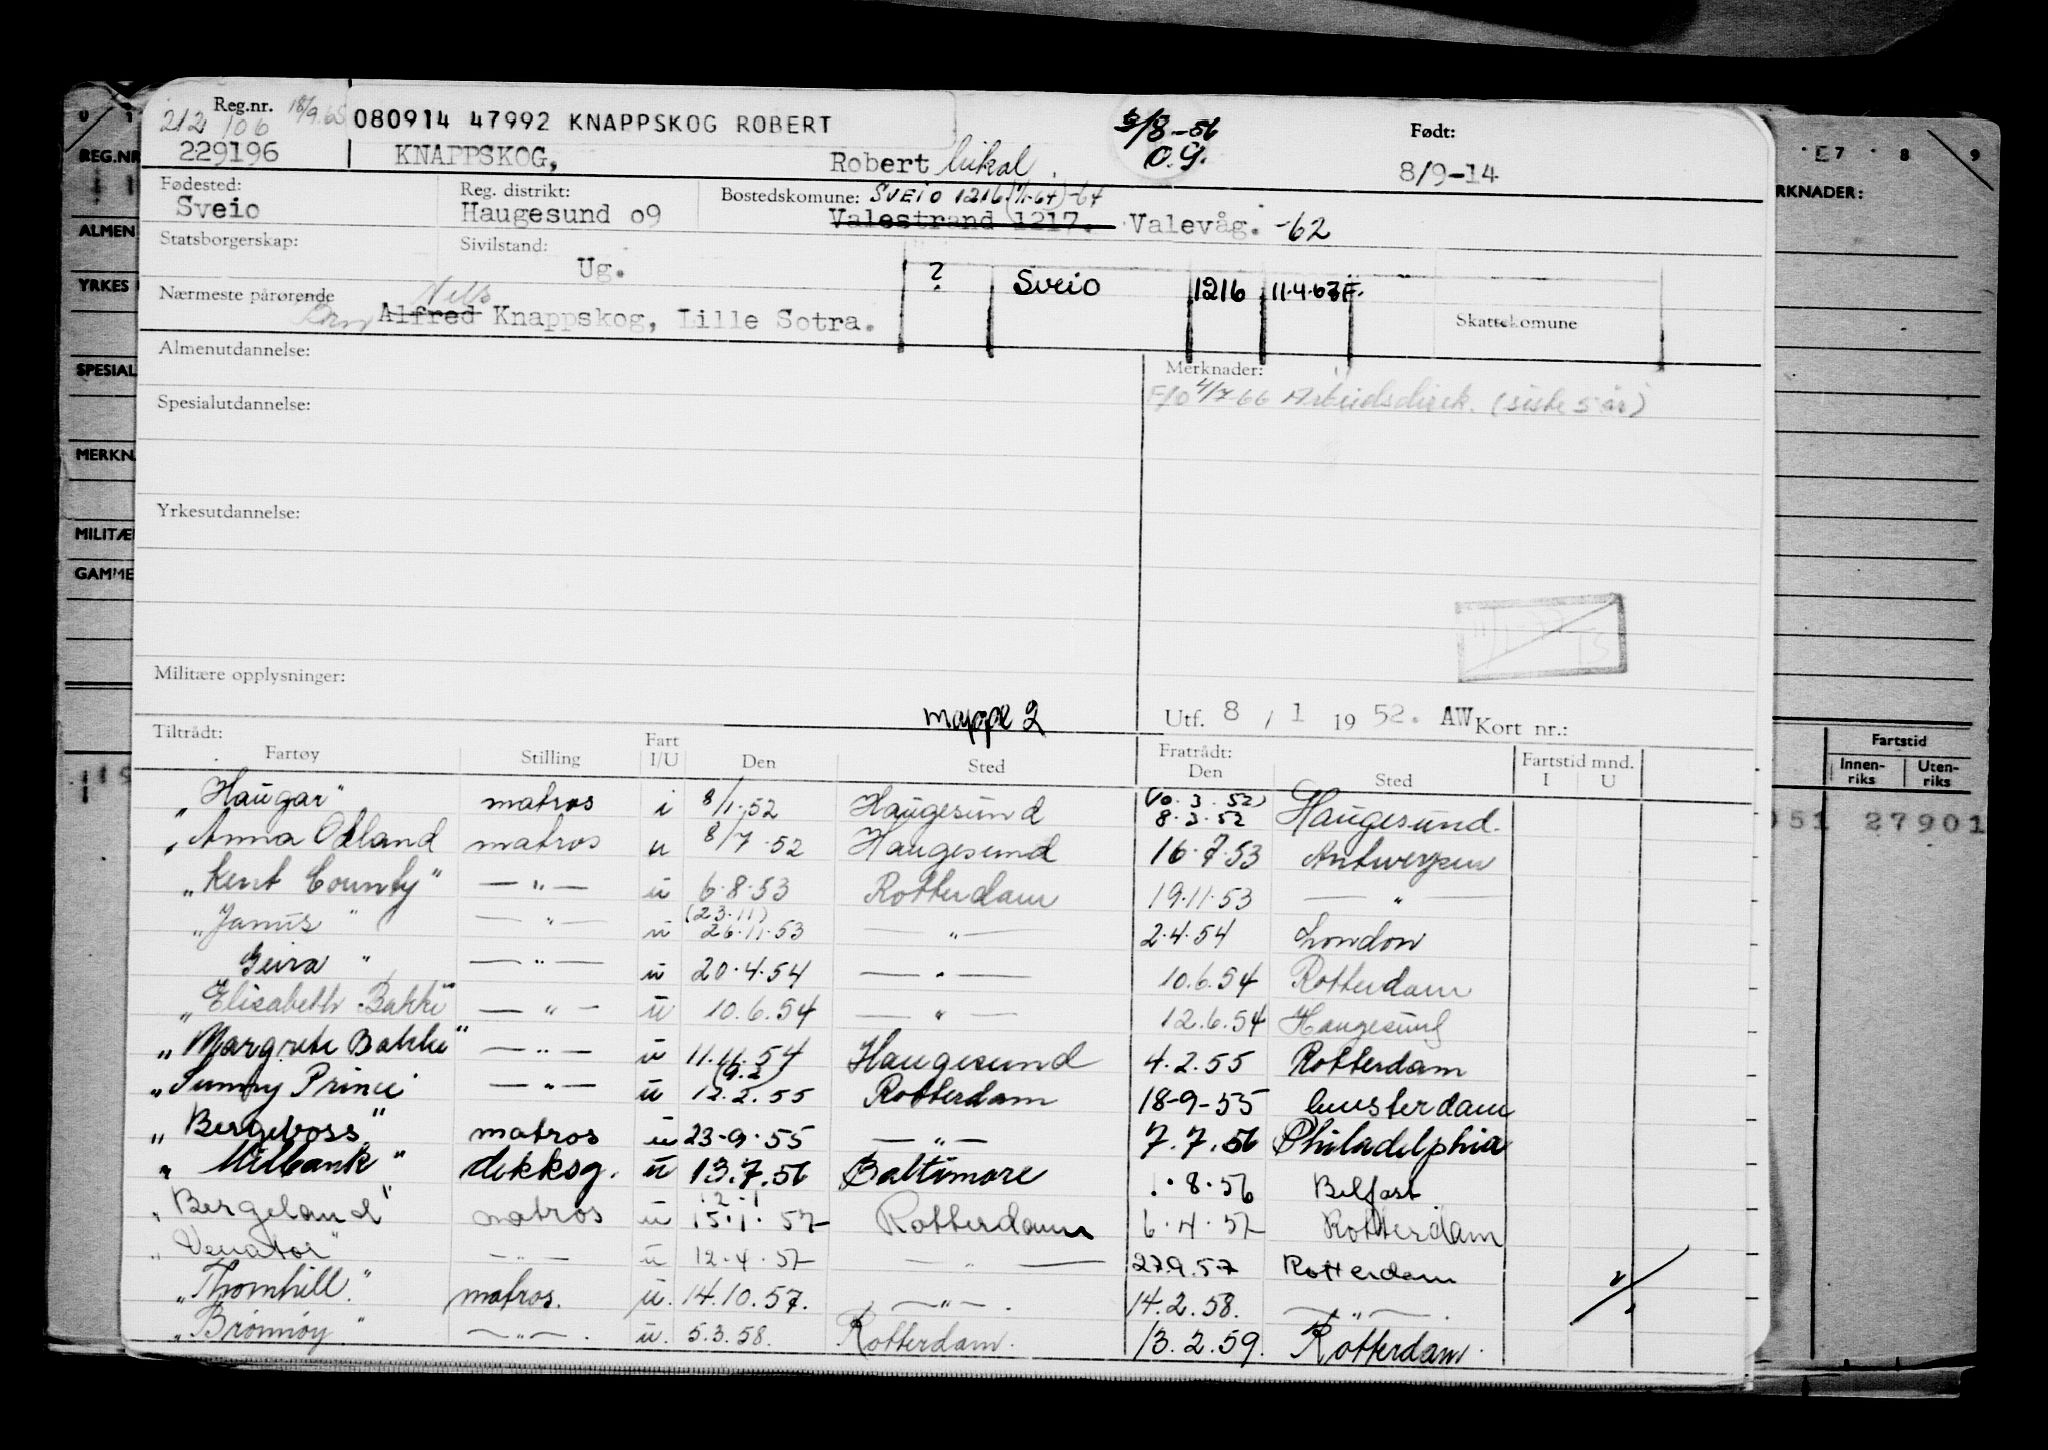 Reg.nr. 18/9.65
212 106 080914 47992 KNAPPSKOG ROBERT 3/8-56 Født:
229196 KNAPPSKOG, Robert Mikal. O.G. 8/9-14
Fødested: Reg. distrikt: Bostedskomune: SVEIO 1216 (1/1-64)-64
Sveio Haugesund o9 Valestrand 1217. Valevåg. -62
Statsborgerskap: Sivilstand:
Ug. ? Sveio 1216 11.4.63 F.
Nærmeste pårørende Nels
Alfred Knappskog, Lille Sotra. Skattekomune
Almenutdannelse: Merknader:
F/O 4/7 66 Arbeidsdirek. (siste 5 år)
Spesialutdannelse:
Yrkesutdannelse:
Militære opplysninger:
mappe 2 Utf. 8 / 1 19 52. AW Kort nr.:
Tiltrådt: Fratrådt:
Fartøy Stilling Fart I/U Den Sted Den Sted Fartstid mnd. I U
"Haugar" matros i 8/1.52 Haugesund (10.3.52) 8.3.52 Haugesund.
"Anna Odland matros u 8/7.52 Haugesund 16.7.53 Antwerpen
"Kent County" — " — u 6.8.53 Rotterdam 19.11.53 — " —
"Janus" — " — u (23.11) 26.11.53 — " — 2.4.54 London
Geira " — " — u 20.4.54 — " — 10.6.54 Rotterdam
"Elisabeth Bakke" — " — u 10.6.54 — " — 12.6.54 Haugesund
"Margrete Bakke" — " — u 11.11.54 Haugesund 4.2.55 Rotterdam
"Sunny Prince" — " — u (9.2) 12.2.55 Rotterdam 18-9-55 Amsterdam
"Bergeboss" matros u 23-9.55 — " — 7.7.56 Philadelphia
"Milbank" dekksg. u 13.7.56 Baltimore 1.8.56 Belfast
"Bergeland" matros u 12.1 15.1.57 Rotterdam 6.4.57 Rotterdam
"Venator" — " — u 12.4.57 — " — 27.9.57 Rotterdam
"Thornhill." matros. u. 14.10.57. — " — . 14.2.58. — " — .
"Brønnøy" — " — . u. 5.3.58. Rotterdam. 13.2.59. Rotterdam.
REG.NR
ALMEN
YRKES
SPESIAL
MERKN
MILITÆ
GAMME
7 8 9
RKNADER:
Fartstid
Innen-riks Uten-riks
051 27901